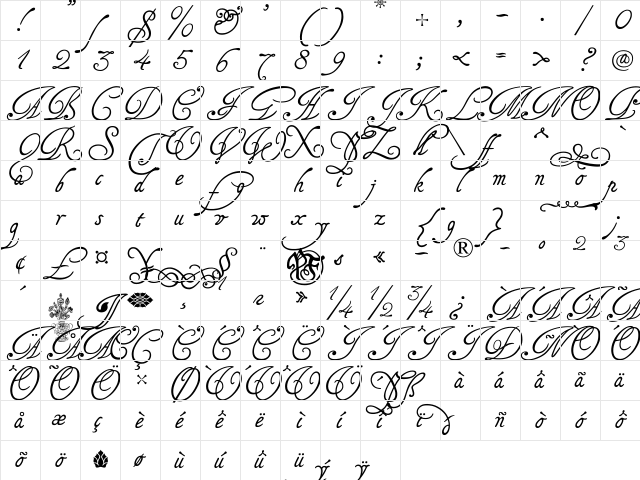 ! " / $ % & ' ( ) * + , - . / 0
1 2 3 4 5 6 7 8 9 : ; < = > ? @
A B C D E F G H I J K L M N O P
Q R S T U V W X Y Z
a b c d e f g h i j k l m n o p
q r s t u v w x y z { } ® - ° 2 3
¢ £ ¤ ¥ § ¨ «
´ ¸ » 1/4 1/2 3/4 ¿ À Á Â Ã
Ä Å Æ Ç È É Ê Ë Ì Í Î Ï Ð Ñ Ò Ó
Ô Õ Ö × Ø Ù Ú Û Ü Ý ß à á â ã ä
å æ ç è é ê ë ì í î ï ñ ò ó ô
õ ö ø ù ú û ü ý ÿ